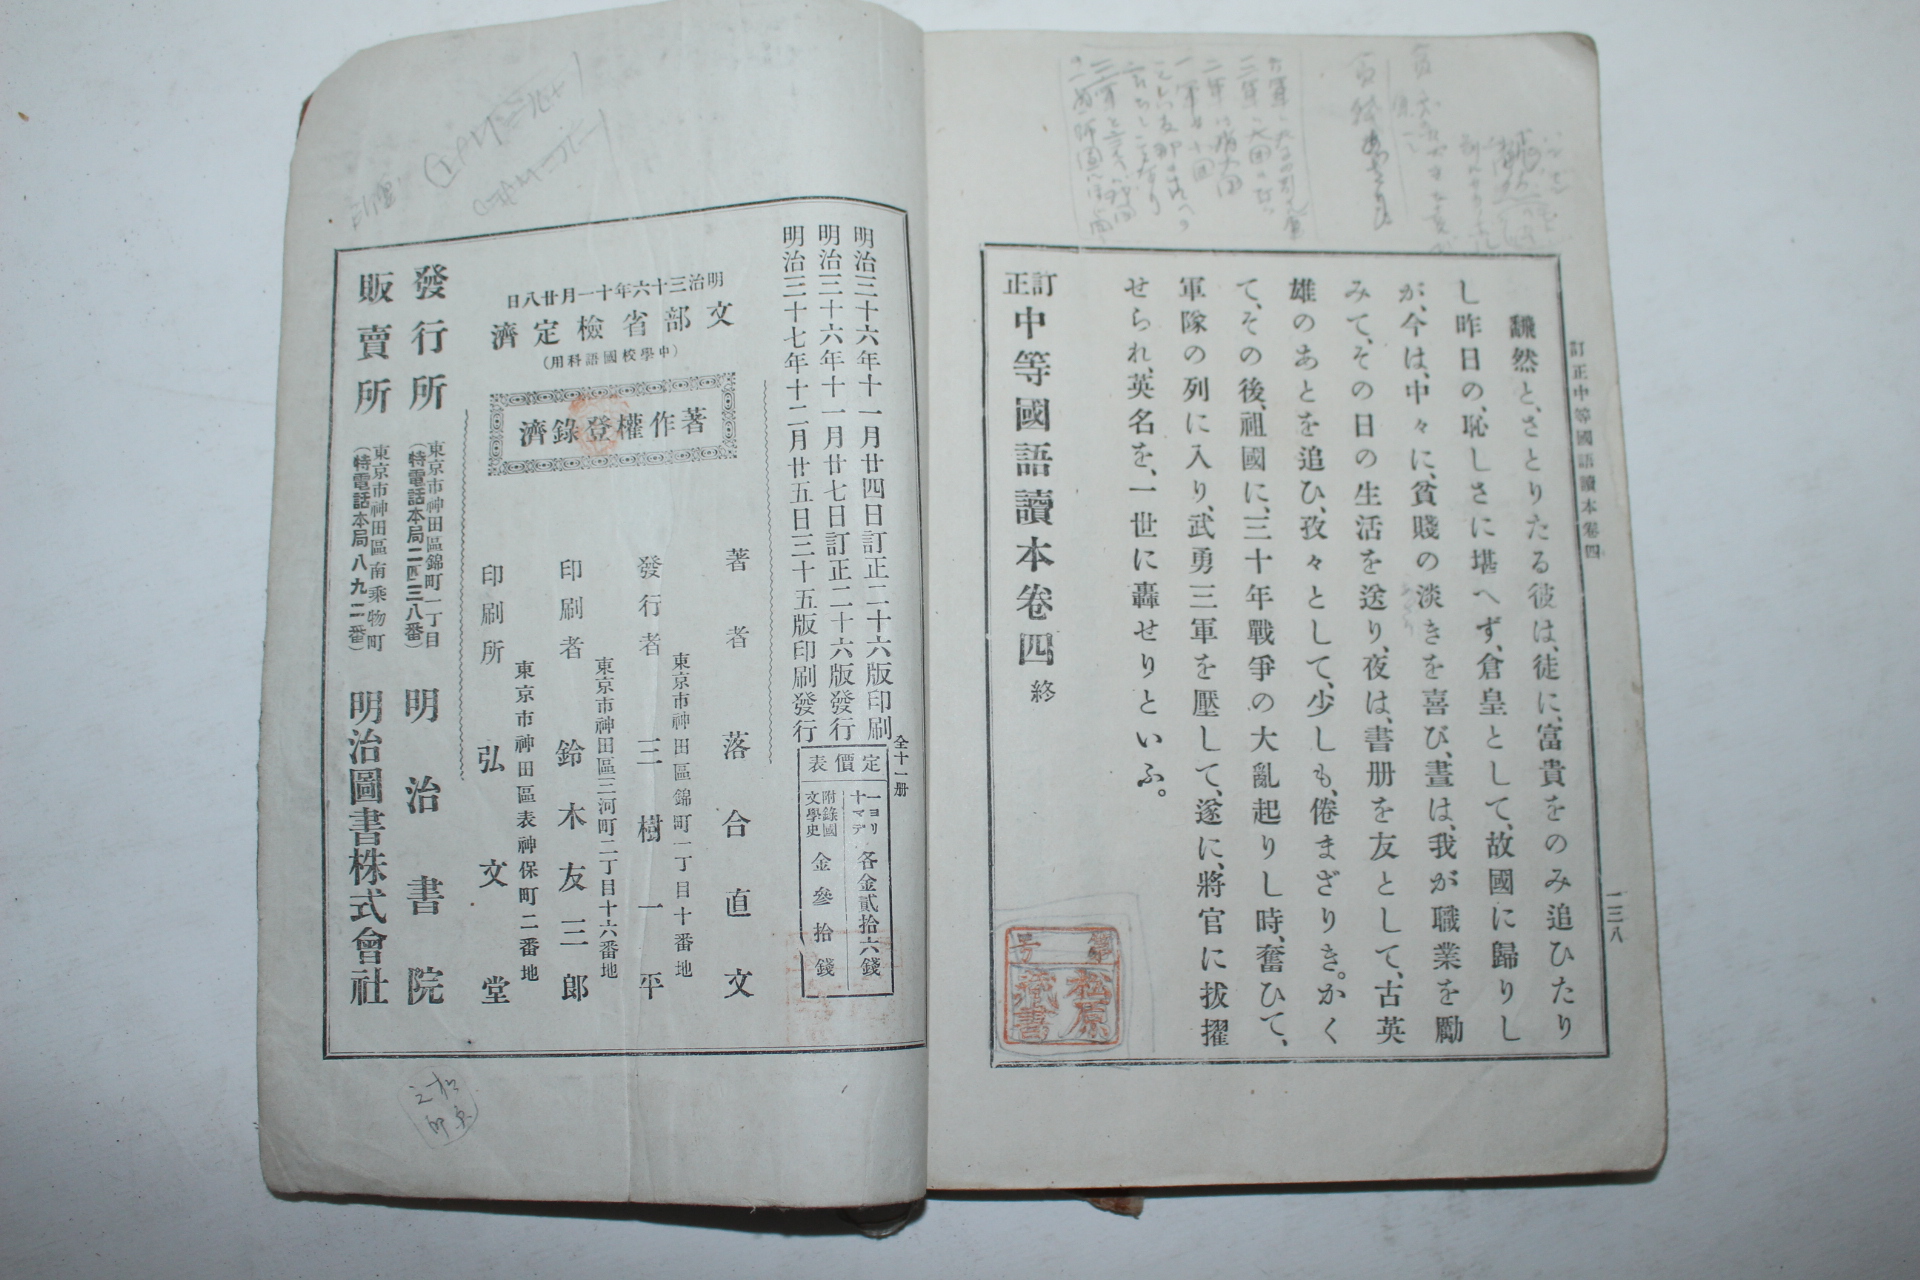 訂正中等國語讀本卷四
二三八
飜然と、さとりたる彼は、徒に、富貴をのみ追ひたり
し昨日の、恥しさに堪へず、倉皇として、故國に歸りし
が、今は、中々に、貧賤の淡きを喜び、晝は、我が職業を勵
みて、その日の生活を送り、夜は、書册を友として、古英
雄のあとを追ひ、孜々として、少しも、倦まざりき。かく
て、その後、祖國に、三十年戰爭の大亂起りし時、奮ひて、
軍隊の列に入り、武勇三軍を壓して、遂に、將官に拔擢
せられ、英名を、一世に轟せりといふ。
訂正中等國語讀本卷四 終
第 號
松原
藏書
全十一册
明治三十六年十一月廿四日訂正二十六版印刷
明治三十六年十一月廿七日訂正二十六版發行
明治三十七年十二月廿五日三十五版印刷發行
定價表
一ヨリ十マデ 各金貳拾六錢
附錄國文學史 金參拾錢
著者 落合直文
東京市神田區錦町一丁目十番地
發行者 三樹一平
東京市神田區三河町二丁目十六番地
印刷者 鈴木友三郎
東京市神田區表神保町二番地
印刷所 弘文堂
明治三十六年十一月廿八日
文部省檢定濟
(中學校國語科用)
著作權登錄濟
發行所 東京市神田區錦町一丁目(特電話本局二四三八番) 明治書院
販賣所 東京市神田區南乘物町(特電話本局八九二番) 明治圖書株式會社